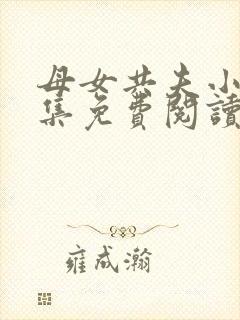 母女共夫小
集免费閱讀
雍成瀚